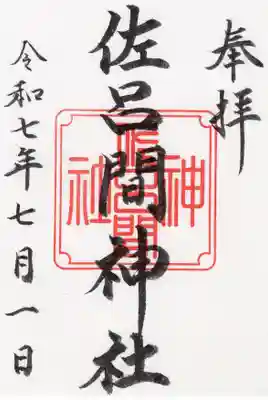 奉拝
佐呂間神社
佐呂間
神
社
令和七年七月一日